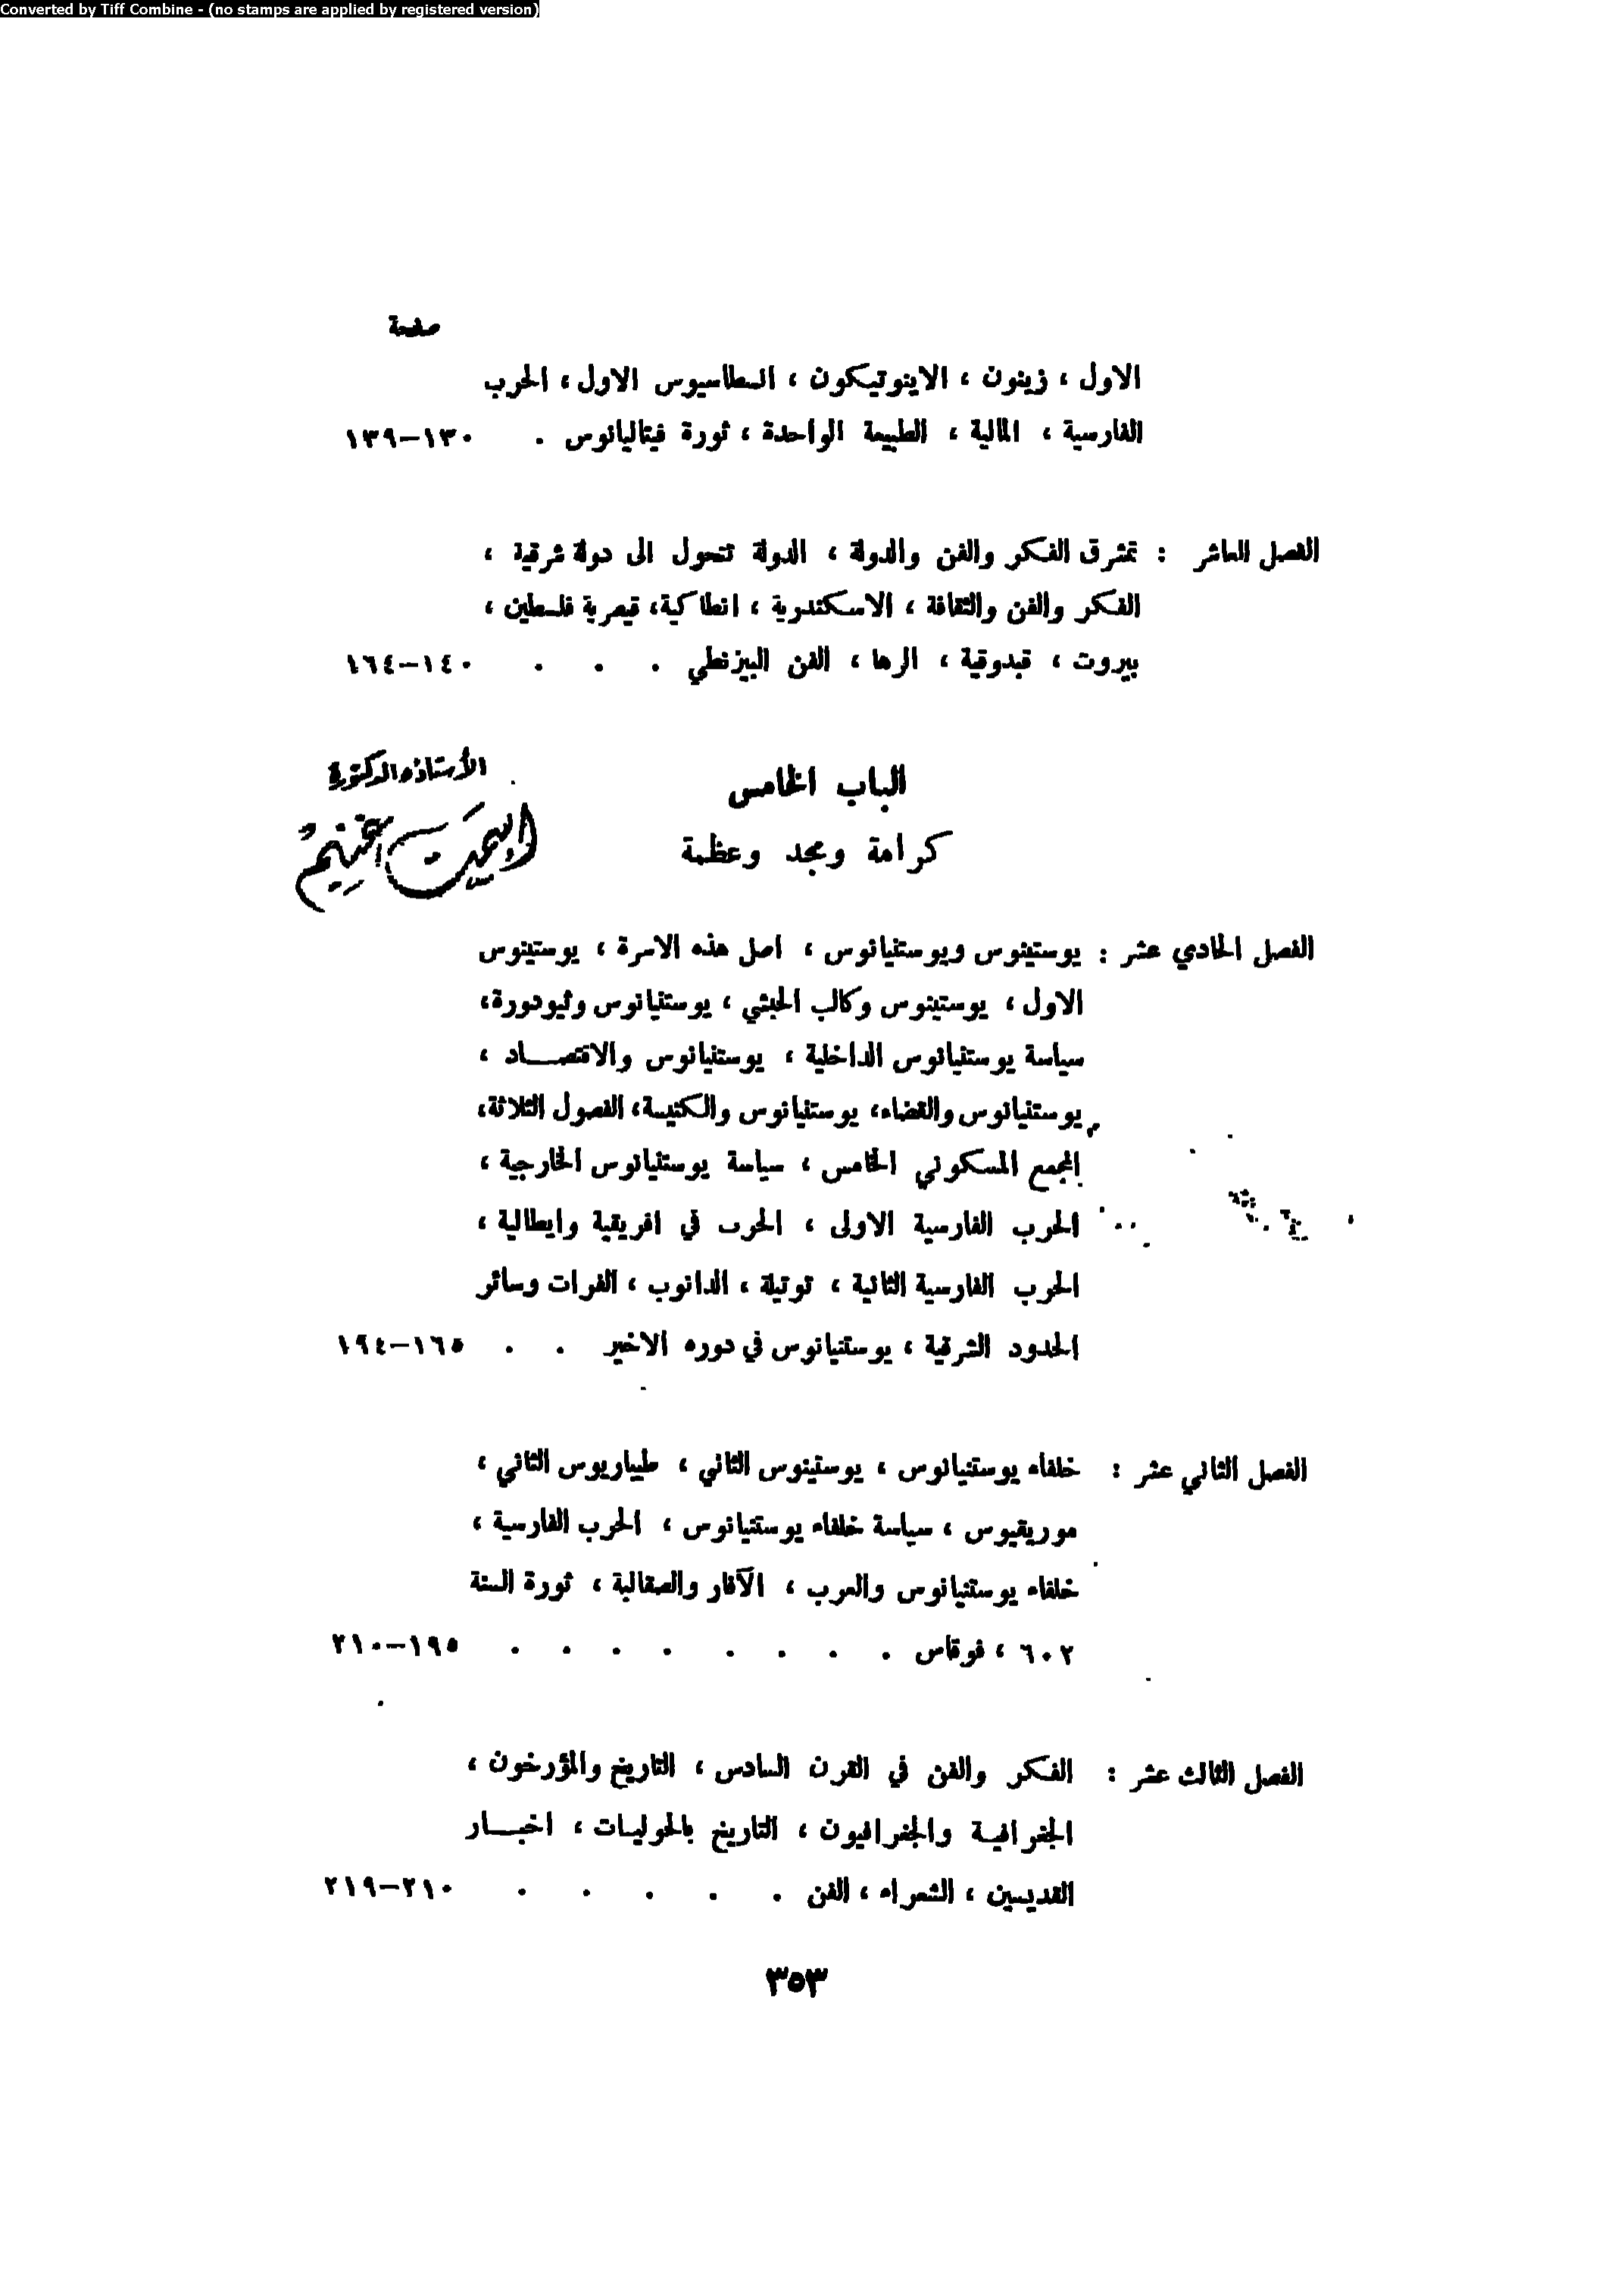 Converted by Tiff Combine - (no stamps are applied by registered version)
صفحة
الاول ، زينون ، الاينوتيكون ، انسطاسيوس الاول ، الحرب
الفارسية ، المالية ، الطبيعة الواحدة ، ثورة فيتاليانوس . ١٣٠–١٣٩
الفصل العاشر : تمشرق الفكر والفن والدولة ، الدولة تتحول الى دولة شرقية ،
الفكر والفن والثقافة ، الاسكندرية ، انطاكية، قيصرية فلسطين ،
بيروت ، قبدوقية ، الرها ، الفن البيزنطي . . . ١٤٠–١٦٤
الباب الخامس
الأستاذه الدكتورة
كرامة ومجد وعظمة
الفصل الحادي عشر : يوستينوس ويوستنيانوس ، اصل هذه الاسرة ، يوستينوس
الاول ، يوستينوس وكالب الحبشي ، يوستنيانوس وثيودورة،
سياسة يوستنيانوس الداخلية ، يوستنيانوس والاقتصـــاد ،
يوستنيانوس والقضاء، يوستنيانوس والكنيسة، الفصول الثلاثة،
المجمع المسكوني الخامس ، سياسة يوستنيانوس الخارجية ،
الحرب الفارسية الاولى ، الحرب في افريقية وايطالية ،
الحرب الفارسية الثانية ، توتيلة ، الدانوب ، الفرات وسائر
الحدود الشرقية ، يوستنيانوس في دوره الاخير . . ١٦٥–١٩٤
الفصل الثاني عشر : خلفاء يوستنيانوس ، يوستينوس الثاني ، طيباريوس الثاني ،
موريقيوس ، سياسة خلفاء يوستنيانوس ، الحرب الفارسية ،
خلفاء يوستنيانوس والعرب ، الآفار والصقالبة ، ثورة السنة
٦٠٢ ، فوقاس . . . . . . . . ١٩٥–٢١٠
الفصل الثالث عشر : الفكر والفن في القرن السادس ، التاريخ والمؤرخون ،
الجغرافيـة والجغرافيون ، التاريخ بالحوليـات ، اخبـــار
القديسين ، الشعراء ، الفن . . . . . ٢١٠–٢١٩
٣٥٣